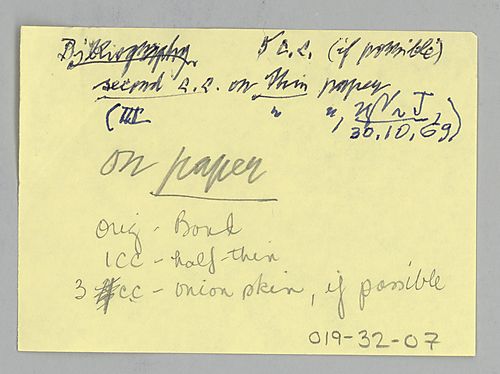 Bibliography 5 c.c. (if possible)
second c.c. on thin paper
(III " ",
30.10.69)
on paper
orig - Bond
1CC - half-thin
3 cc - onion skin, if possible
019-32-07